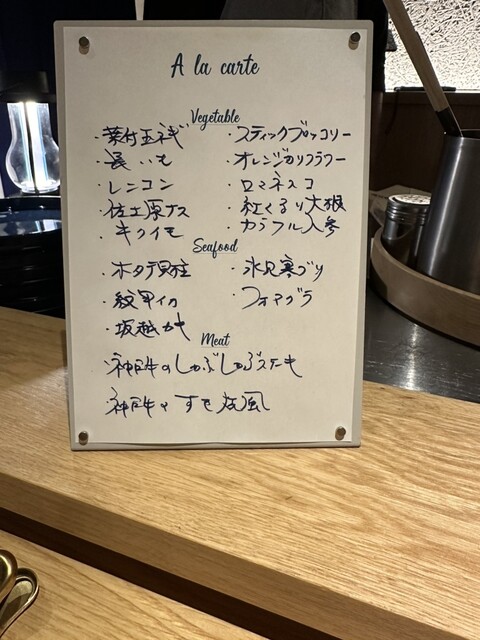 A la carte
Vegetable
・葉付玉ネギ
・長いも
・レンコン
・佐土原ナス
・キクイモ
・スティックブロッコリー
・オレンジカリフラワー
・ロマネスコ
・紅くるり大根
・カラフル人参
Seafood
・ホタテ貝柱
・紋甲イカ
・坂越カキ
・氷見寒ブリ
・フォアグラ
Meat
・神戸牛のしゃぶしゃぶステーキ
・神戸牛のすき焼風